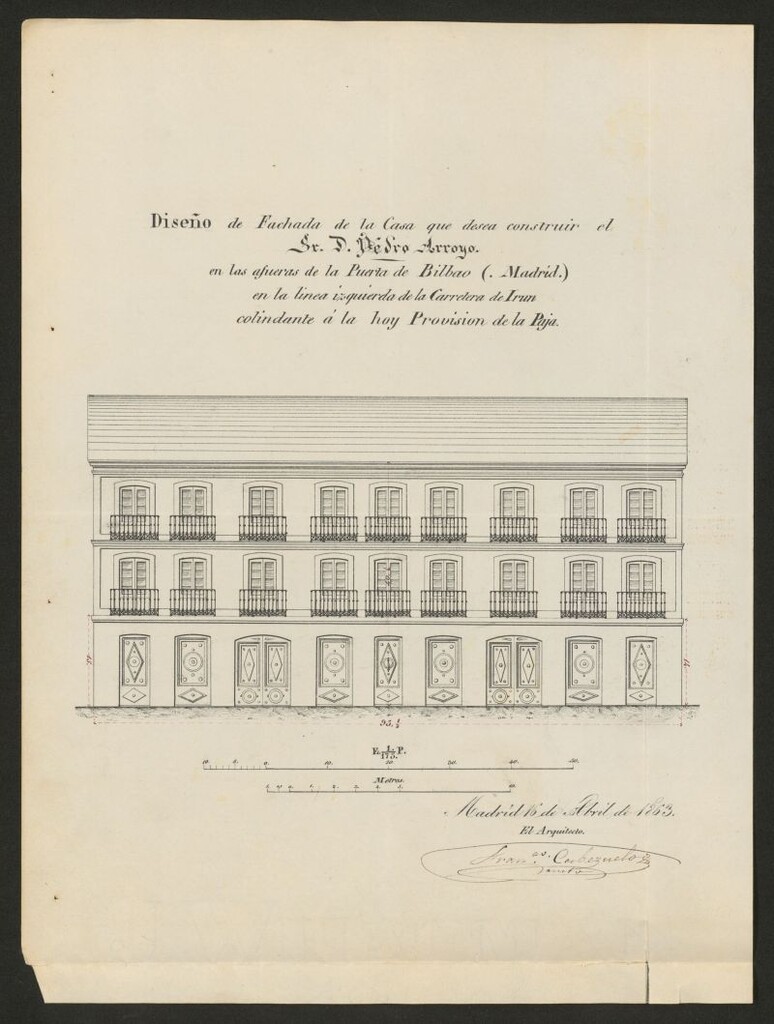 Diseño de Fachada de la Casa que desea construir el
Sr. D. Pedro Arroyo.
en las afueras de la Puerta de Bilbao (. Madrid.)
en la linea izquierda de la Carretera de Irun
colindante á la hoy Provision de la Paja.
95,½
E. 1/175. P.
10. 0. 10. 20. 30. 40. 50.
Metros.
Madrid 16 de Abril de 1863.
El Arquitecto.
Fran.co Cabezuelo